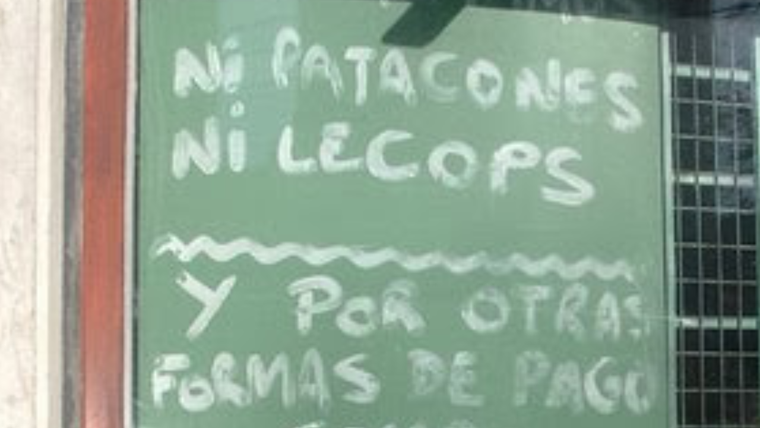 Ni PATACONES
Ni LECOPS
Y POR OTRAS
FORMAS DE PAGO